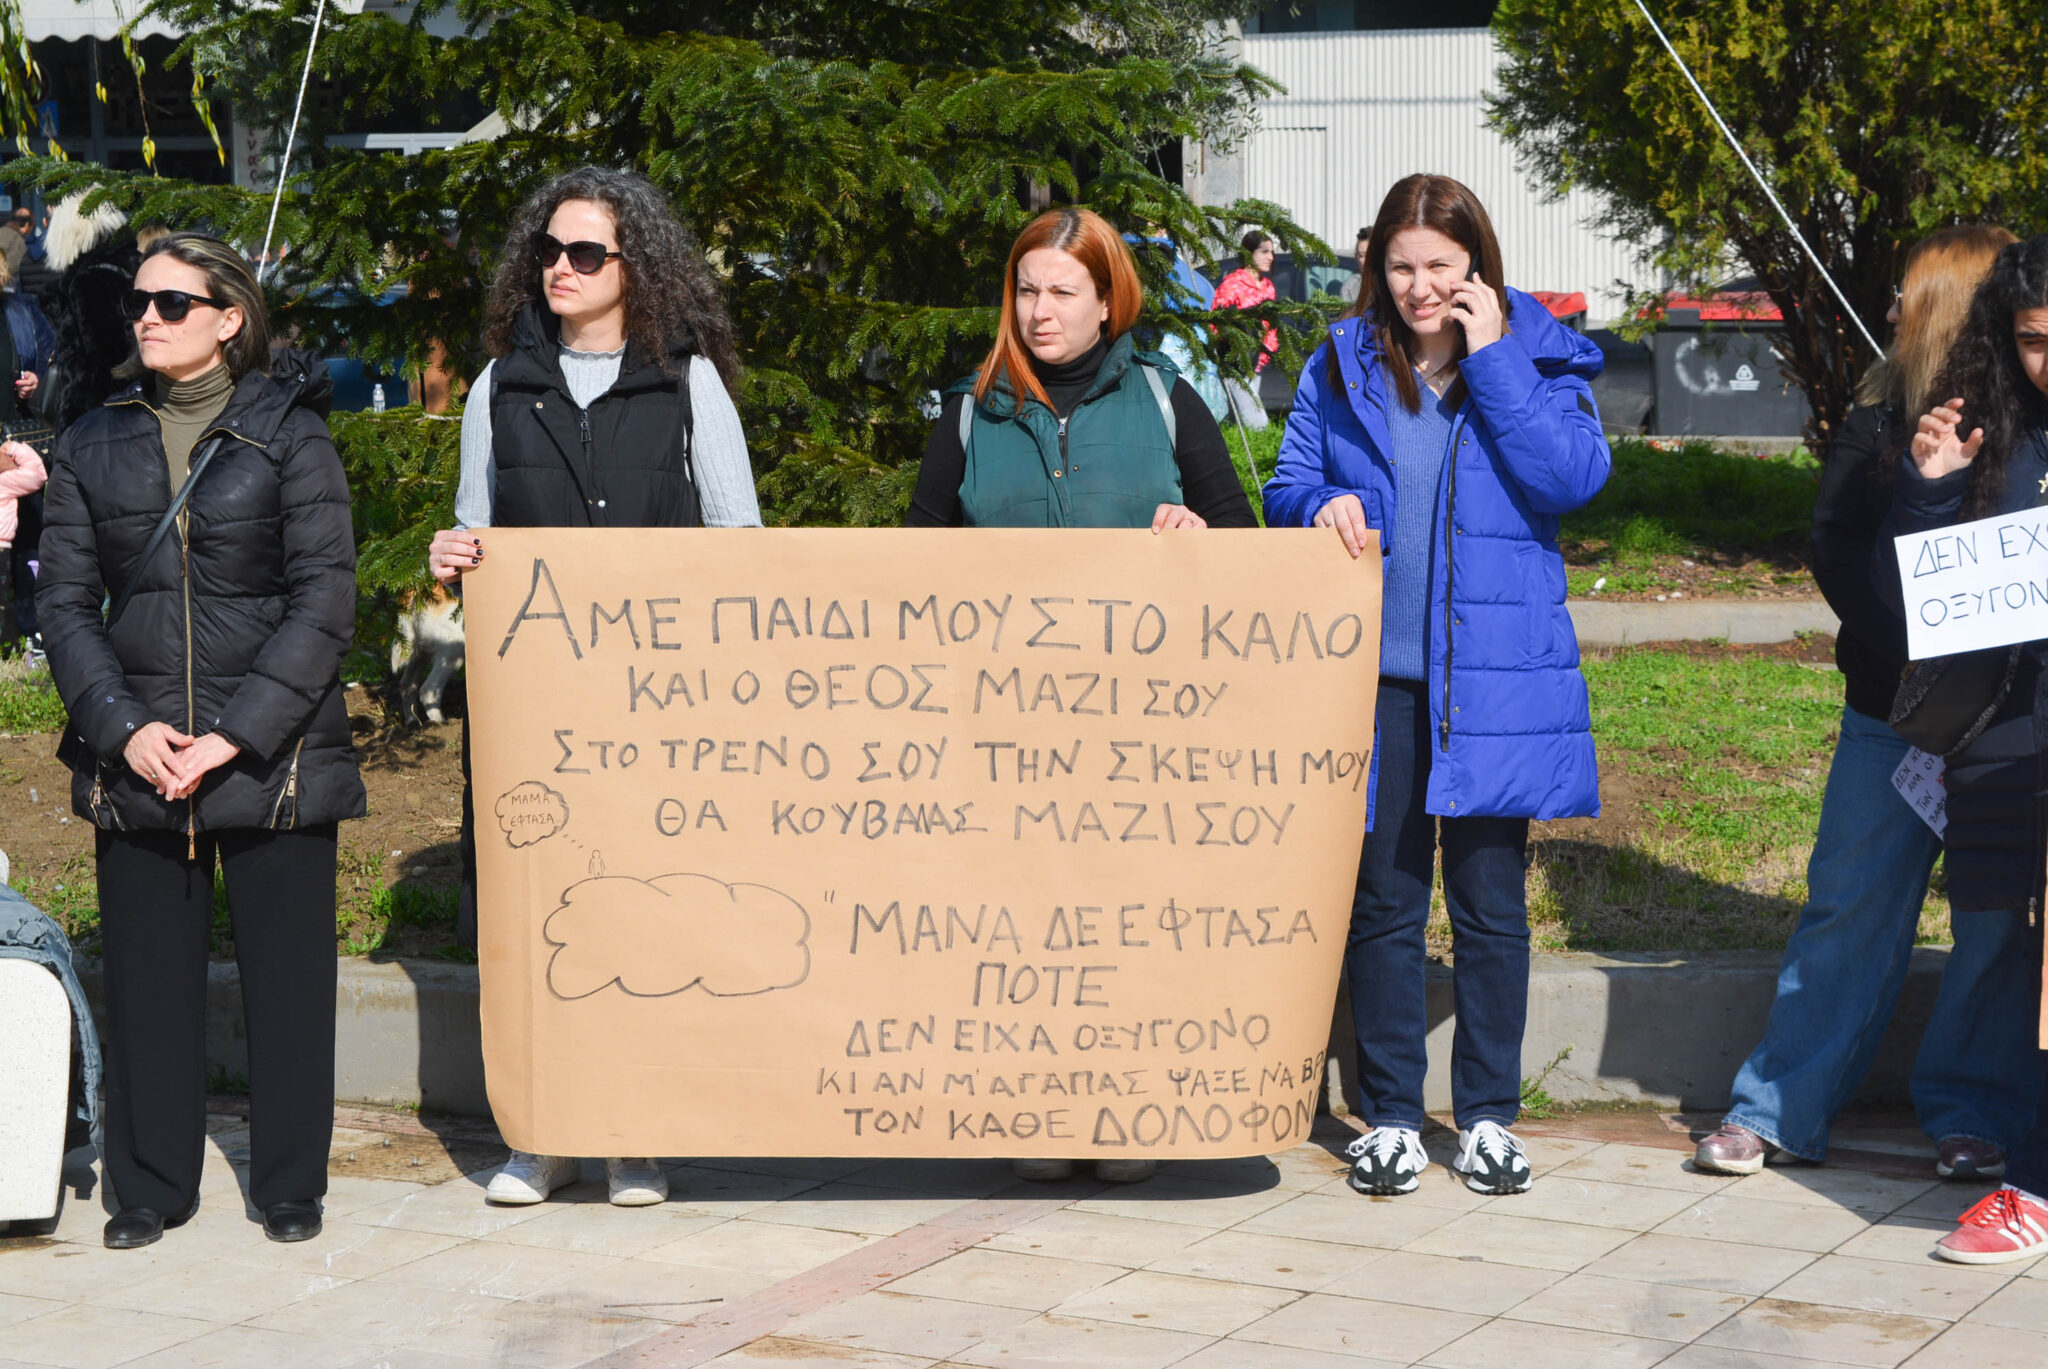 ΑΜΕ ΠΑΙΔΙ ΜΟΥ ΣΤΟ ΚΑΛΟ
ΚΑΙ Ο ΘΕΟΣ ΜΑΖΙ ΣΟΥ
ΣΤΟ ΤΡΕΝΟ ΣΟΥ ΤΗΝ ΣΚΕΨΗ ΜΟΥ
ΘΑ ΚΟΥΒΑΛΑΣ ΜΑΖΙ ΣΟΥ
ΜΑΜΑ
ΕΦΤΑΣΑ
" ΜΑΝΑ ΔΕ ΕΦΤΑΣΑ
ΠΟΤΕ
ΔΕΝ ΕΙΧΑ ΟΞΥΓΟΝΟ
ΚΙ ΑΝ Μ'ΑΓΑΠΑΣ ΨΑΞΕ ΝΑ
ΤΟΝ ΚΑΘΕ ΔΟΛΟΦΟΝ
ΔΕΝ ΕΧ
ΟΞΥΓΟΝ
ΔΕΝ
ΑΛΛΑ
ΤΗΝ